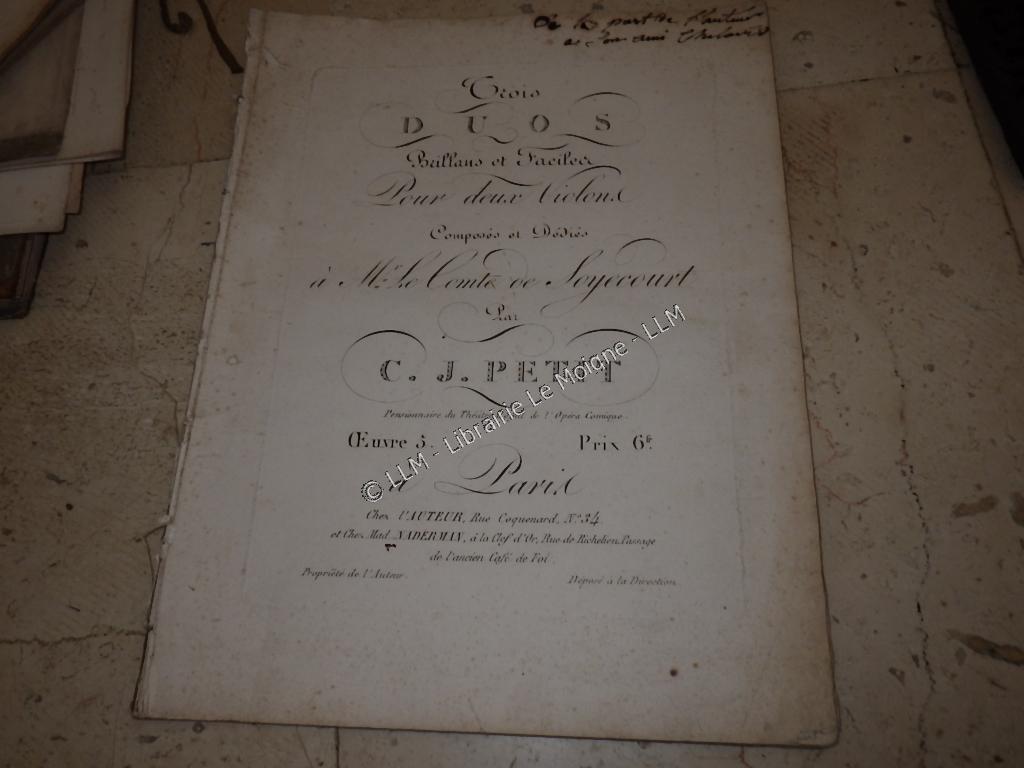 De la part de l'auteur
a son ami
Trois
DUOS
Brillans et Faciles
Pour deux Violons
Composés et Dédiés
à Mr. Le Comte de Soyecourt
Par
C. J. PETIT
Pensionnaire du Théâtre de l'Opéra Comique.
Œuvre 3. Prix 6f.
à Paris
Chez l'AUTEUR, Rue Coquenard, No. 34.
et Chez Mad. NADERMAN, à la Clef d'Or, Rue de Richelieu, Passage
de l'ancien Café de Foi.
Propriété de l'Auteur. Déposé à la Direction.
© LLM - Librairie Le Moigne - LLM